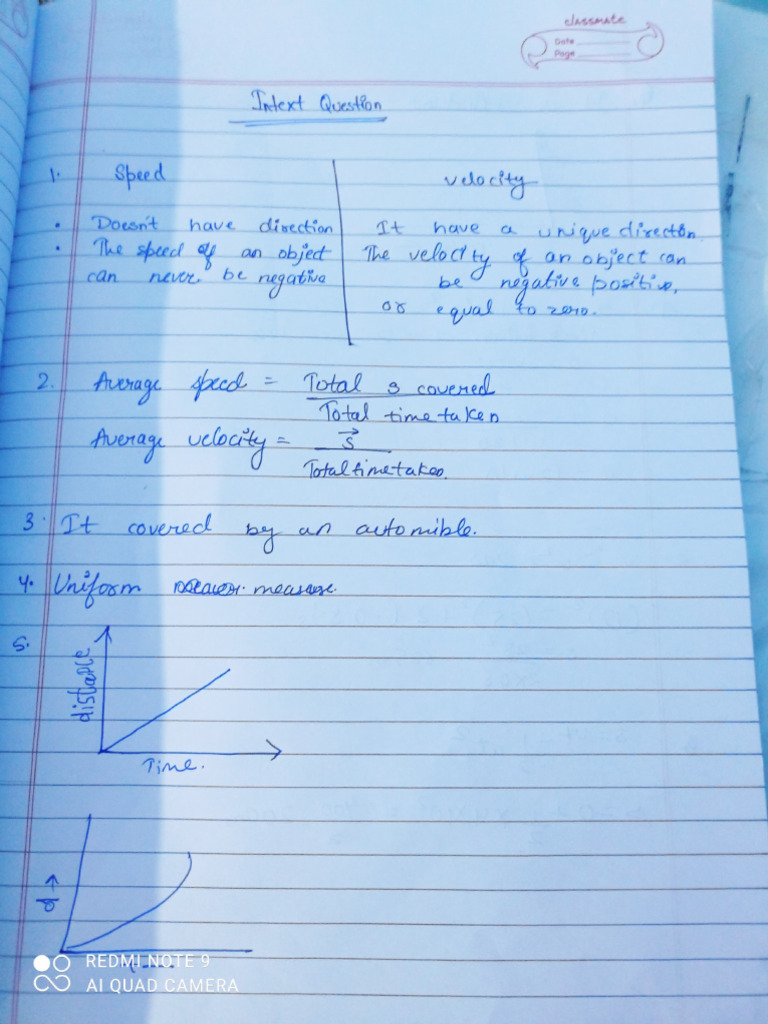 classmate
Date
Page
Intext Question
1. Speed
velocity
• Doesn't have direction
It have a unique direction.
• The speed of an object
The velocity of an object can
can never be negative
be negative positive,
or equal to zero.
2. Average speed = Total s covered
Total time taken
Average velocity = s⃗
Total time taken.
3. It covered by an automible.
4. Uniform measure.
5.
distance
Time.
d →
REDMI NOTE 9
AI QUAD CAMERA